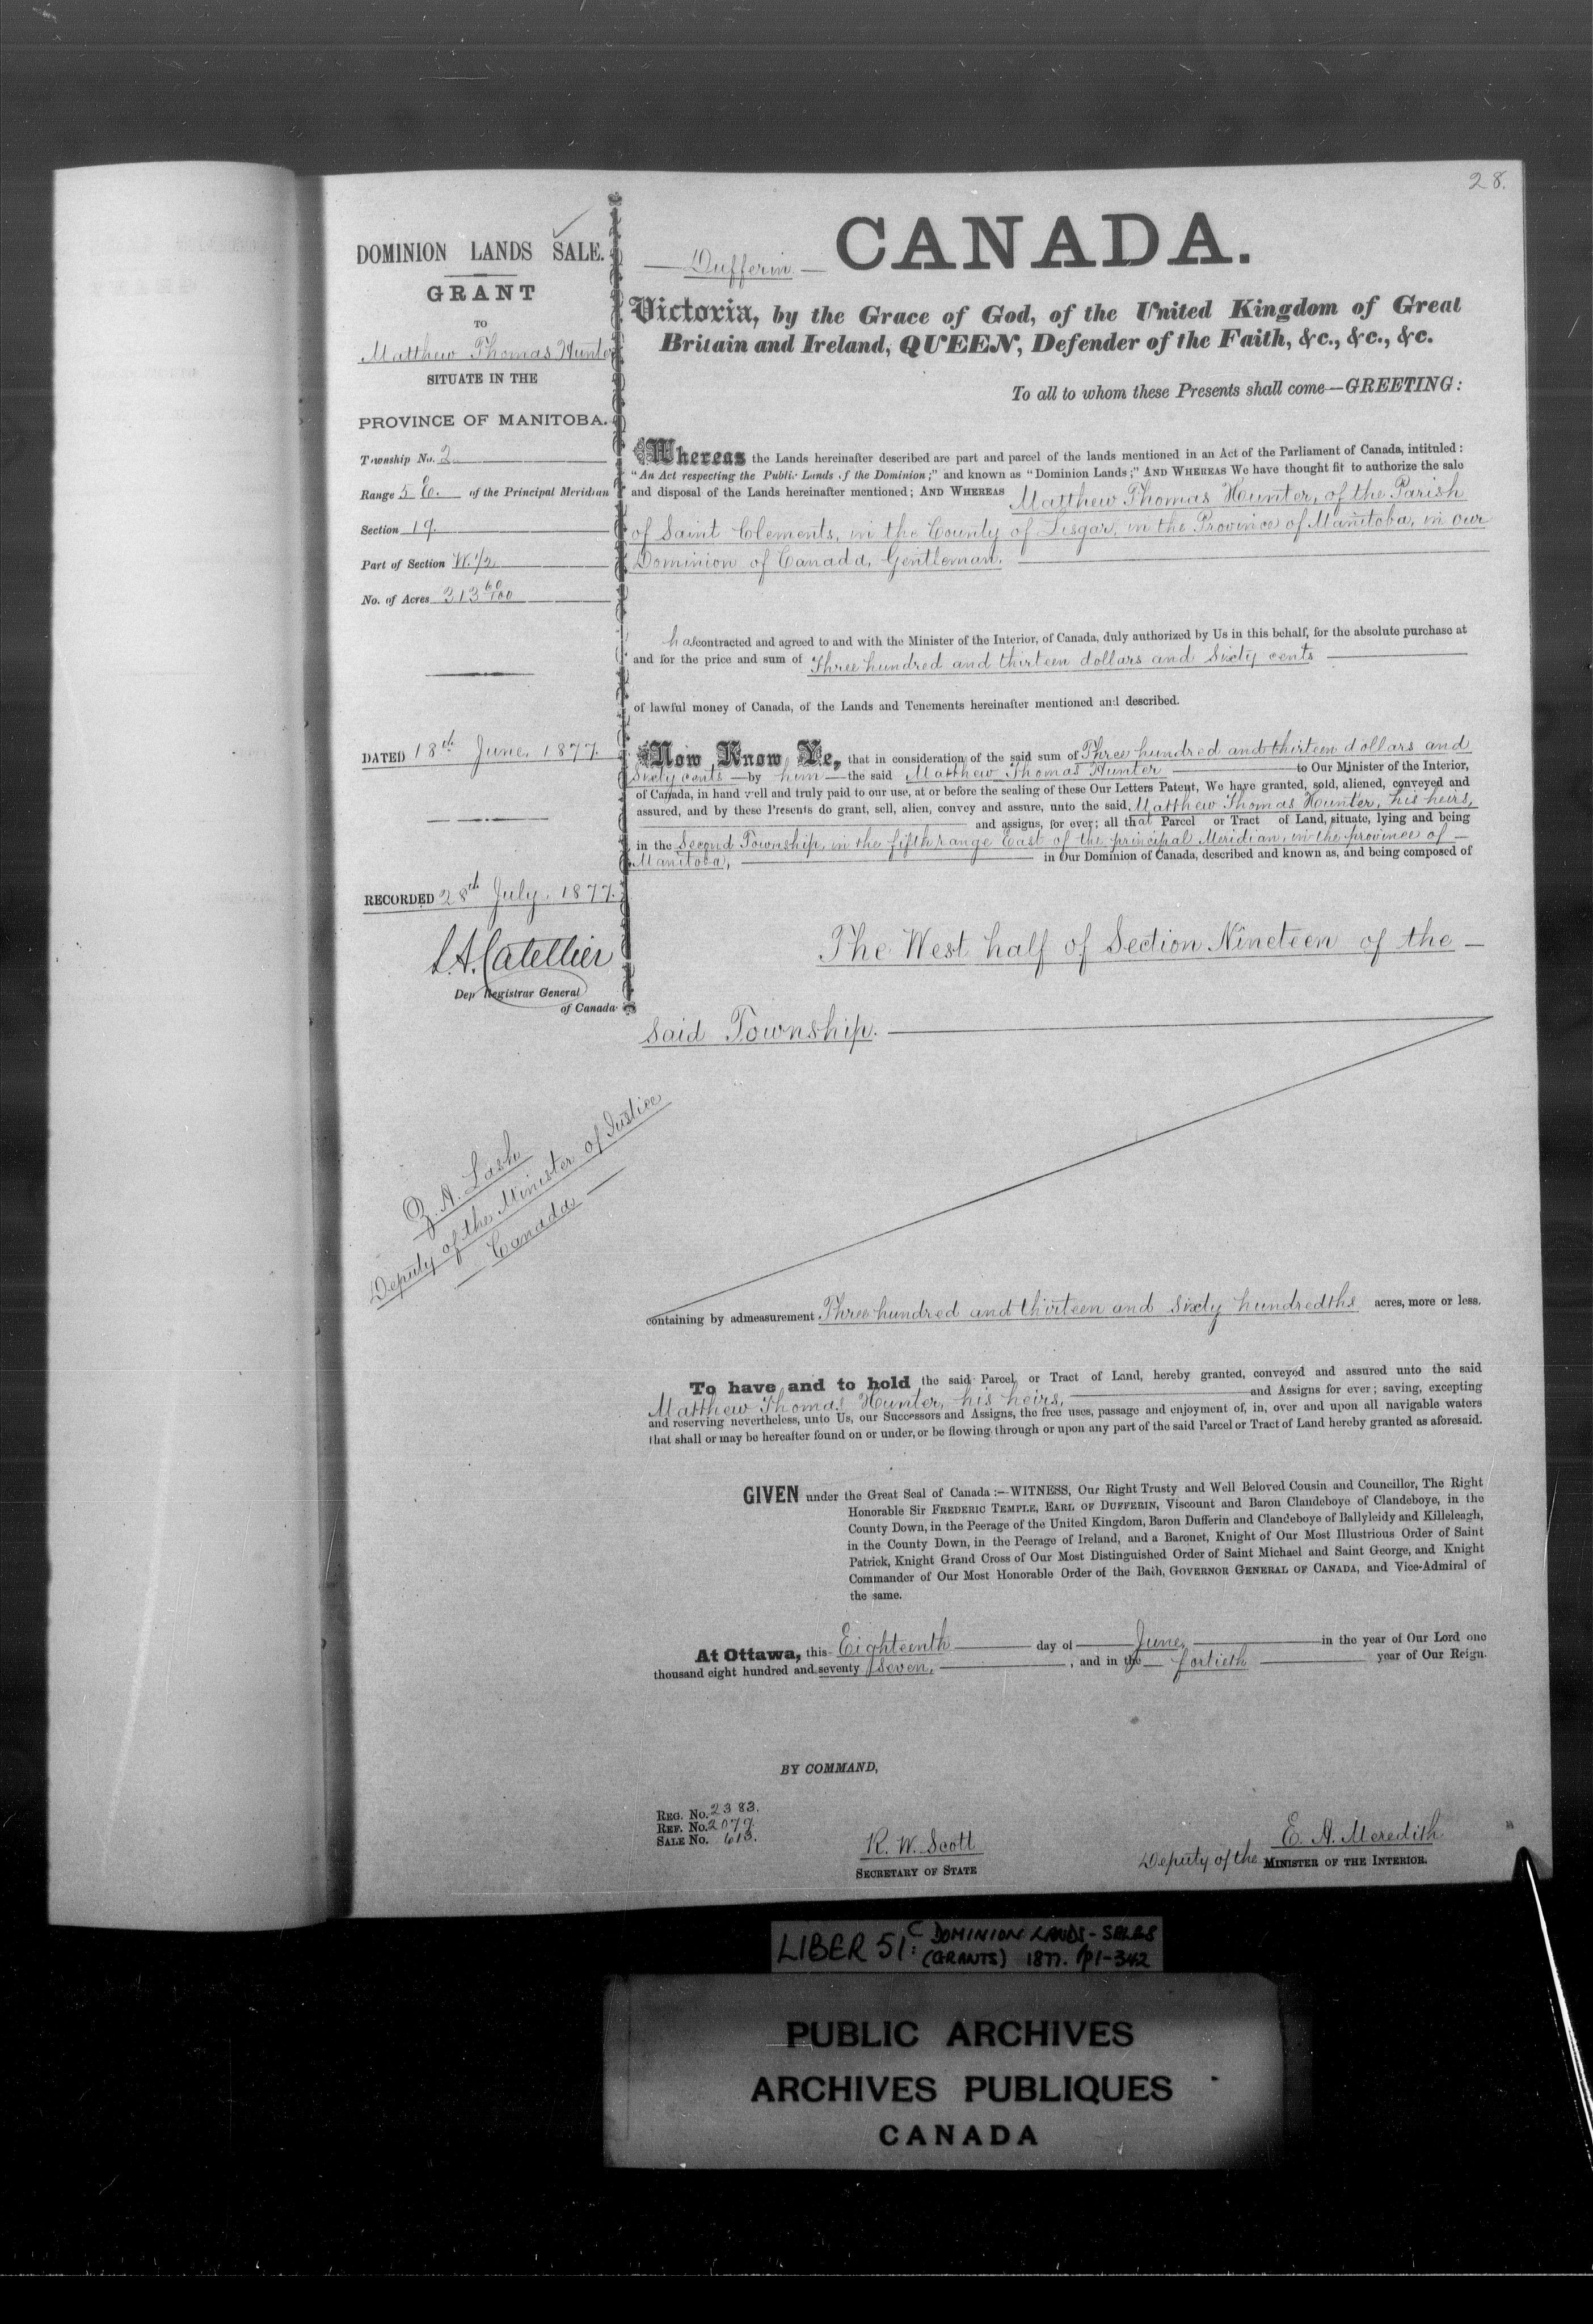 28.
DOMINION LANDS SALE.
GRANT
TO
Matthew Thomas Hunter
SITUATE IN THE
PROVINCE OF MANITOBA.
Township No. 2
Range 5 E. of the Principal Meridian
Section 19.
Part of Section W. 1/2
No. of Acres 313 60/100
DATED 18th June, 1877.
RECORDED 28th July, 1877.
L.A. Catellier
Dep Registrar General
of Canada
Z. A. Lash
Deputy of the Minister of Justice
Canada
Dufferin
CANADA.
Victoria, by the Grace of God, of the United Kingdom of Great
Britain and Ireland, QUEEN, Defender of the Faith, &c., &c., &c.
To all to whom these Presents shall come—GREETING:
Whereas the Lands hereinafter described are part and parcel of the lands mentioned in an Act of the Parliament of Canada, intituled:
"An Act respecting the Public Lands of the Dominion;" and known as "Dominion Lands;" AND WHEREAS We have thought fit to authorize the sale
and disposal of the Lands hereinafter mentioned; AND WHEREAS Matthew Thomas Hunter, of the Parish
of Saint Clements, in the County of Lisgar, in the Province of Manitoba, in our
Dominion of Canada, Gentleman.
has contracted and agreed to and with the Minister of the Interior, of Canada, duly authorized by Us in this behalf, for the absolute purchase at
and for the price and sum of Three hundred and thirteen dollars and Sixty cents
of lawful money of Canada, of the Lands and Tenements hereinafter mentioned and described.
Now Know Ye, that in consideration of the said sum of Three hundred and thirteen dollars and
Sixty cents by him the said Matthew Thomas Hunter to Our Minister of the Interior,
of Canada, in hand well and truly paid to our use, at or before the sealing of these Our Letters Patent, We have granted, sold, aliened, conveyed and
assured, and by these Presents do grant, sell, alien, convey and assure, unto the said Matthew Thomas Hunter, his heirs,
and assigns, for ever; all that Parcel or Tract of Land, situate, lying and being
in the Second Township, in the fifth range East of the principal Meridian, in the province of
Manitoba, in Our Dominion of Canada, described and known as, and being composed of
The West half of Section Nineteen of the
Said Township.
containing by admeasurement Three hundred and thirteen and Sixty hundredths acres, more or less.
To have and to hold the said Parcel or Tract of Land, hereby granted, conveyed and assured unto the said
Matthew Thomas Hunter, his heirs, and Assigns for ever; saving, excepting
and reserving nevertheless, unto Us, our Successors and Assigns, the free uses, passage and enjoyment of, in, over and upon all navigable waters
that shall or may be hereafter found on or under, or be flowing through or upon any part of the said Parcel or Tract of Land hereby granted as aforesaid.
GIVEN under the Great Seal of Canada:—WITNESS, Our Right Trusty and Well Beloved Cousin and Councillor, The Right
Honorable Sir FREDERIC TEMPLE, EARL OF DUFFERIN, Viscount and Baron Clandeboye of Clandeboye, in the
County Down, in the Peerage of the United Kingdom, Baron Dufferin and Clandeboye of Ballyleidy and Killeleagh,
in the County Down, in the Peerage of Ireland, and a Baronet, Knight of Our Most Illustrious Order of Saint
Patrick, Knight Grand Cross of Our Most Distinguished Order of Saint Michael and Saint George, and Knight
Commander of Our Most Honorable Order of the Bath, GOVERNOR GENERAL OF CANADA, and Vice-Admiral of
the same.
At Ottawa, this Eighteenth day of June, in the year of Our Lord one
thousand eight hundred and seventy seven, , and in the fortieth year of Our Reign.
BY COMMAND,
REG. No. 2383.
REF. No. 2077.
SALE No. 613.
R. W. Scott
SECRETARY OF STATE
E. A. Meredith
Deputy of the MINISTER OF THE INTERIOR.
LIBER 51C: DOMINION LANDS - SALES
(GRANTS) 1877. pp1-342
PUBLIC ARCHIVES
ARCHIVES PUBLIQUES
CANADA